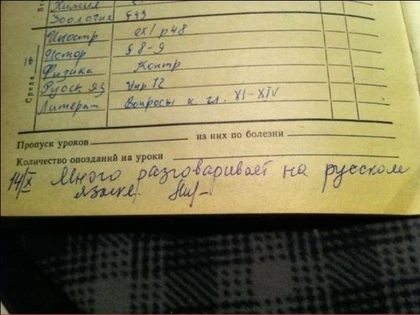 Химия
Зоология §43
Иностр ex1 p48
Истор § 8-9
Физика Контр
Русск яз Упр 12
Литерат Вопросы к гл. XI-XIV
Среда
Пропуск уроков из них по болезни
Количество опозданий на уроки
14/X Много разговаривает на русском
языке.